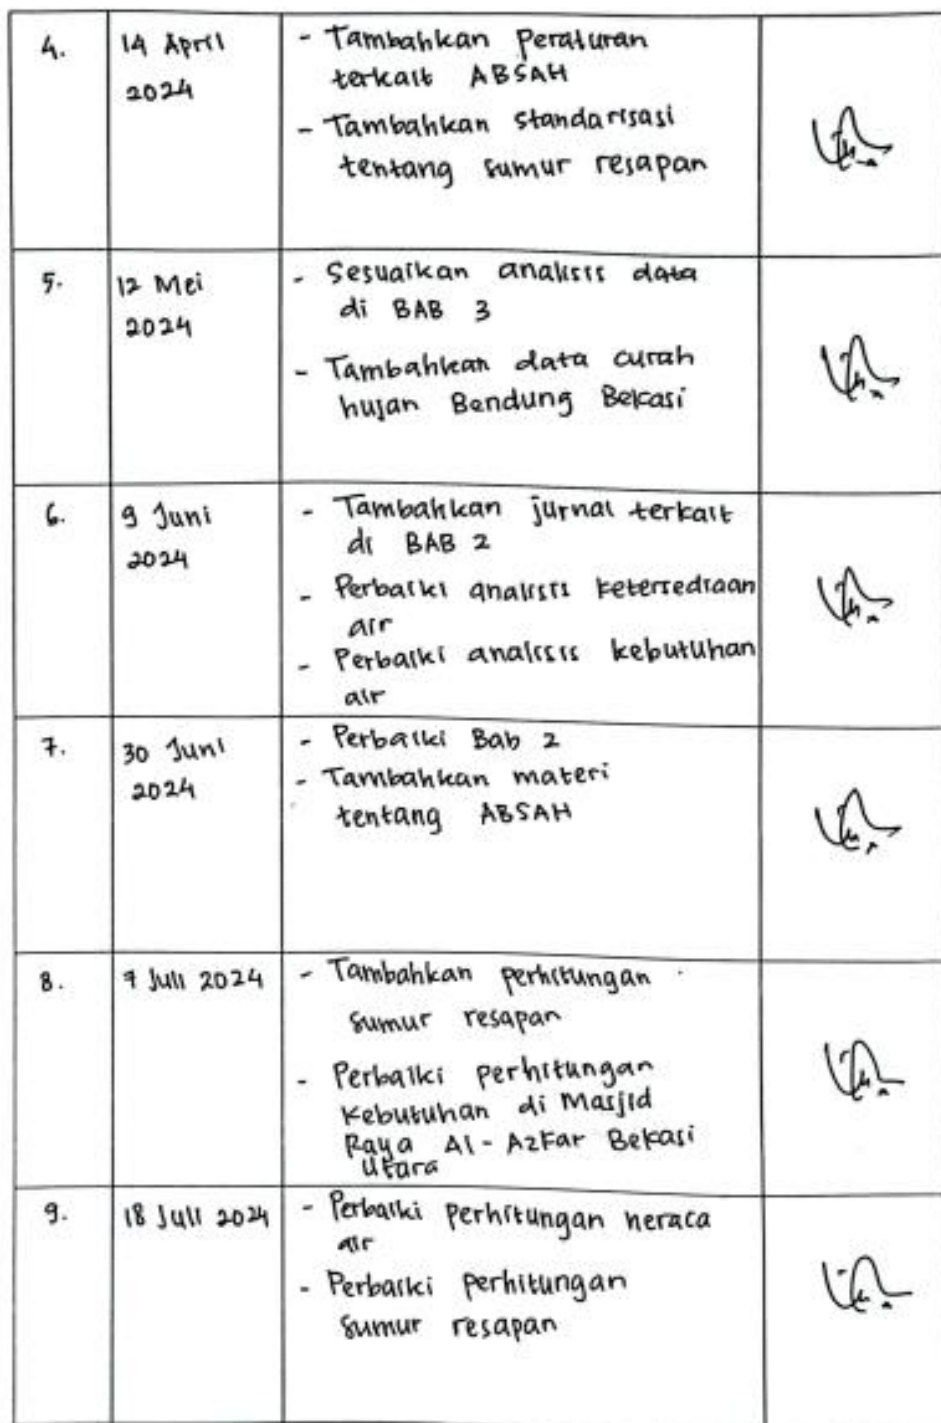 4.
14 April
2024
- Tambahkan Peraturan
terkait ABSAH
- Tambahkan standarisasi
tentang sumur resapan
5.
12 Mei
2024
- Sesuaikan analisis data
di BAB 3
- Tambahkan data curah
hujan Bendung Bekasi
6.
9 Juni
2024
- Tambahkan jurnal terkait
di BAB 2
- Perbaiki analisis ketersediaan
air
- Perbaiki analisis kebutuhan
air
7.
30 Juni
2024
- Perbaiki Bab 2
- Tambahkan materi
tentang ABSAH
8.
7 Juli 2024
- Tambahkan perhitungan
sumur resapan
- Perbaiki perhitungan
Kebutuhan di Masjid
Raya Al-Azkar Bekasi
Utara
9.
18 Juli 2024
- Perbaiki perhitungan neraca
air
- Perbaiki perhitungan
sumur resapan